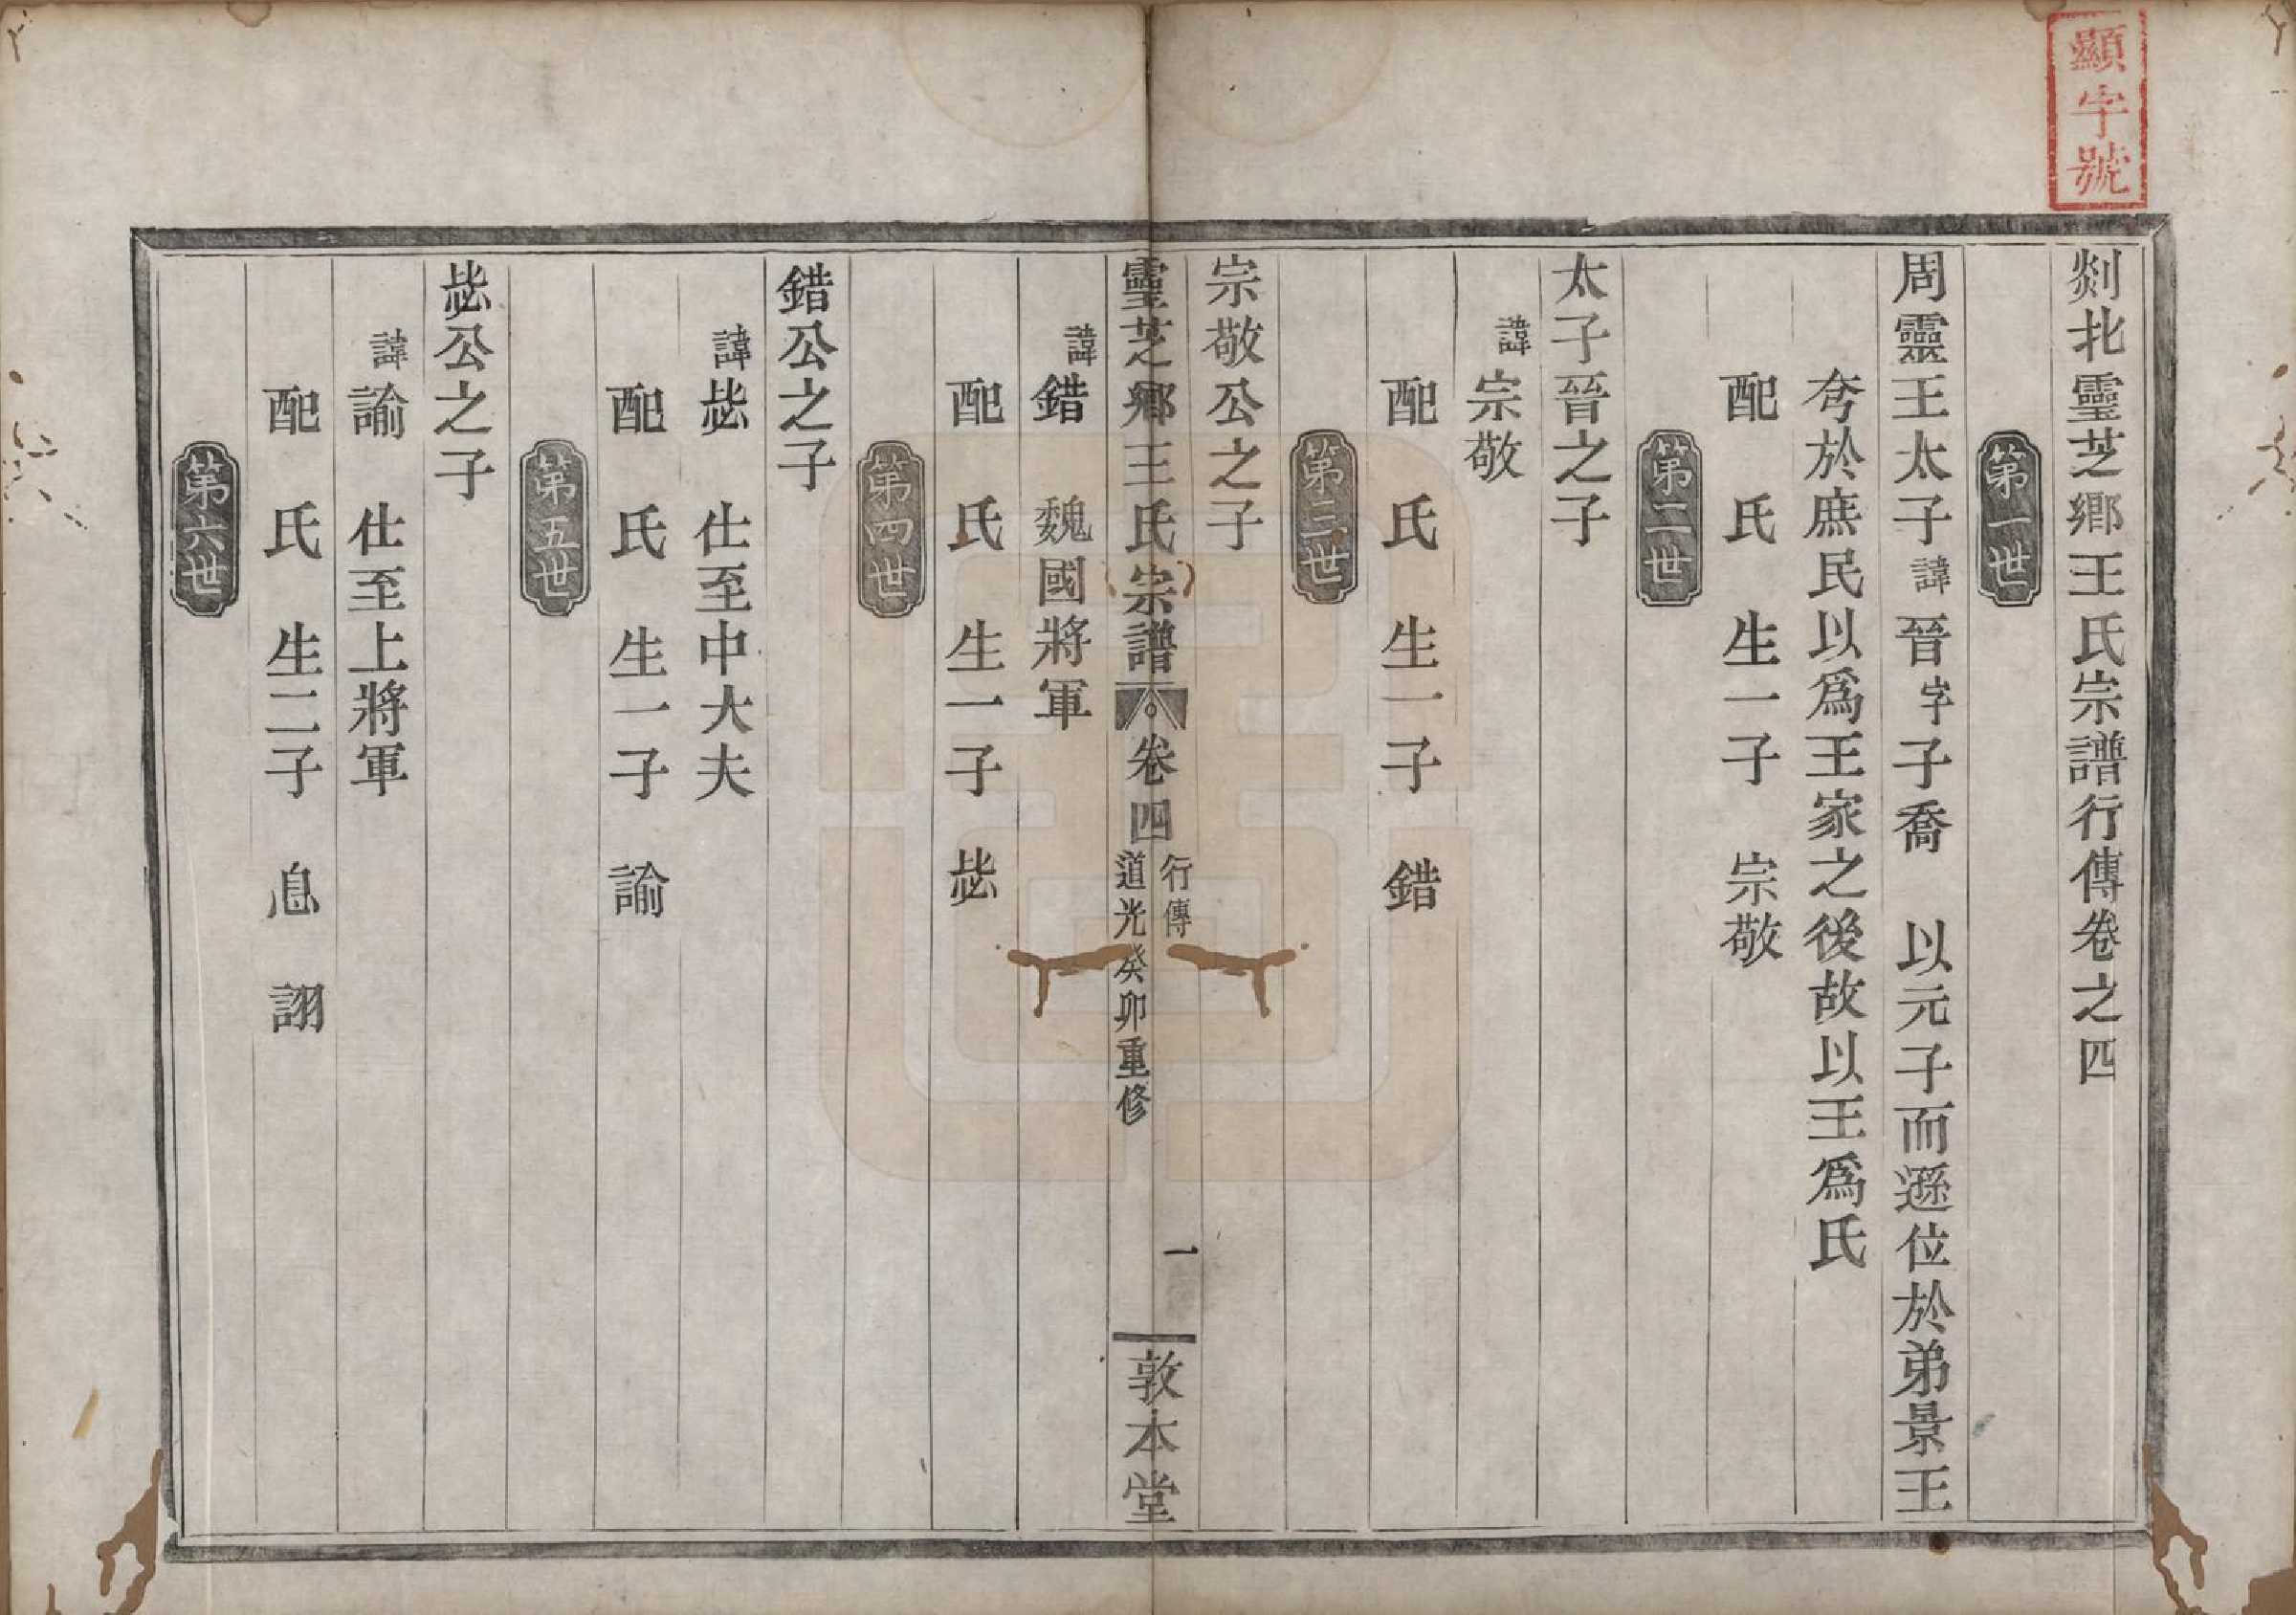 顯字號
剡北靈芝鄉王氏宗譜行傳卷之四
第一世
周靈王太子諱晉字子喬　以元子而遜位於弟景王
夸於庶民以爲王家之後故以王爲氏
配　氏　生一子　宗敬
第二世
太子晉之子
諱宗敬
配　氏　生一子　錯
第三世
宗敬公之子
靈芝鄉王氏宗譜　卷四　行傳　道光癸卯重修　一　敦本堂
諱錯　魏國將軍
配　氏　生一子　毖
第四世
錯公之子
諱毖　仕至中大夫
配　氏　生一子　諭
第五世
毖公之子
諱諭　仕至上將軍
配　氏　生二子　息　詡
第六世